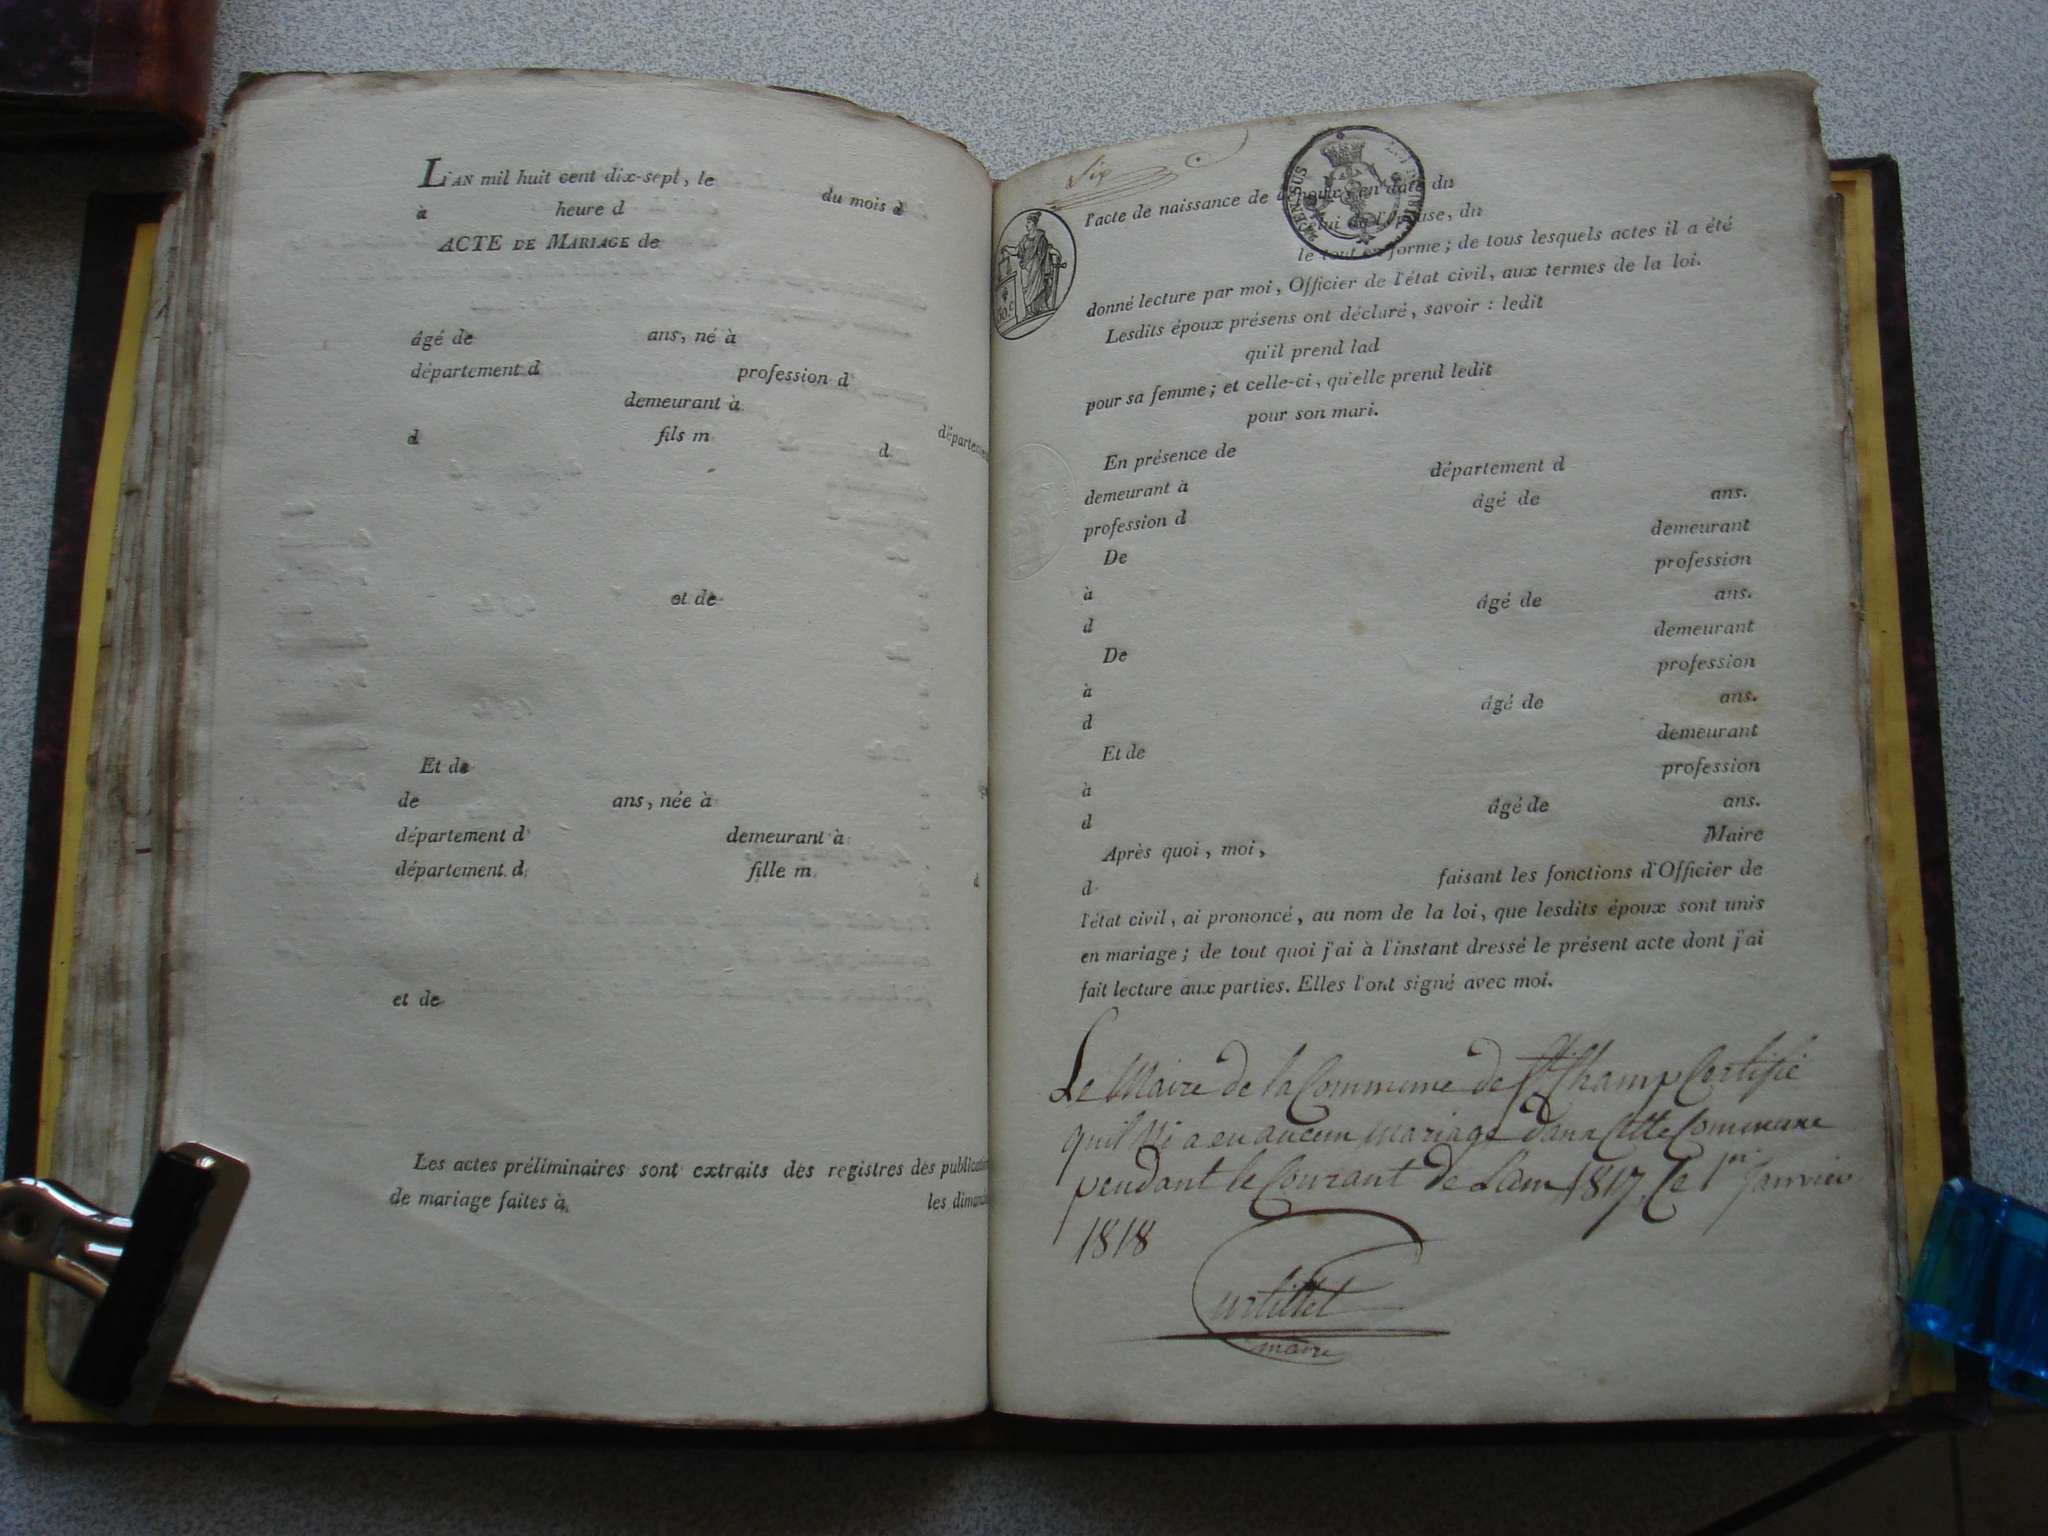 L'AN mil huit cent dix-sept, le du mois d
à heure d
ACTE DE MARIAGE de
âgé de ans, né à
département d profession d
demeurant à
département
d fils m d
et de
Et de
de ans, née à
département d demeurant à
département d fille m d
et de
Les actes préliminaires sont extraits des registres des publication
de mariage faites à les dimanc
Six
l'acte de naissance de l'époux, en date du
lui de l'épouse, du
le tout en forme; de tous lesquels actes il a été
donné lecture par moi, Officier de l'état civil, aux termes de la loi.
Lesdits époux présens ont déclaré, savoir : ledit
qu'il prend lad
pour sa femme; et celle-ci, qu'elle prend ledit
pour son mari.
En présence de
demeurant à département d
profession d âgé de ans.
De demeurant
à profession
d âgé de ans.
De demeurant
à profession
d âgé de ans.
Et de demeurant
à profession
d âgé de ans.
Après quoi, moi, Maire
d faisant les fonctions d'Officier de
l'état civil, ai prononcé, au nom de la loi, que lesdits époux sont unis
en mariage; de tout quoi j'ai à l'instant dressé le présent acte dont j'ai
fait lecture aux parties. Elles l'ont signé avec moi.
Le Maire de la Commune de St Champ Certifie
quil Ni a eu aucun Mariage dans Cette Commune
pendant le Courant de Lan 1817, Ce 1er Janvier
1818
Curtillet
maire